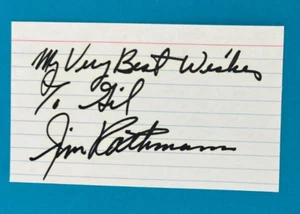 My Very Best Wishes
To Gil
Jim Rathmann